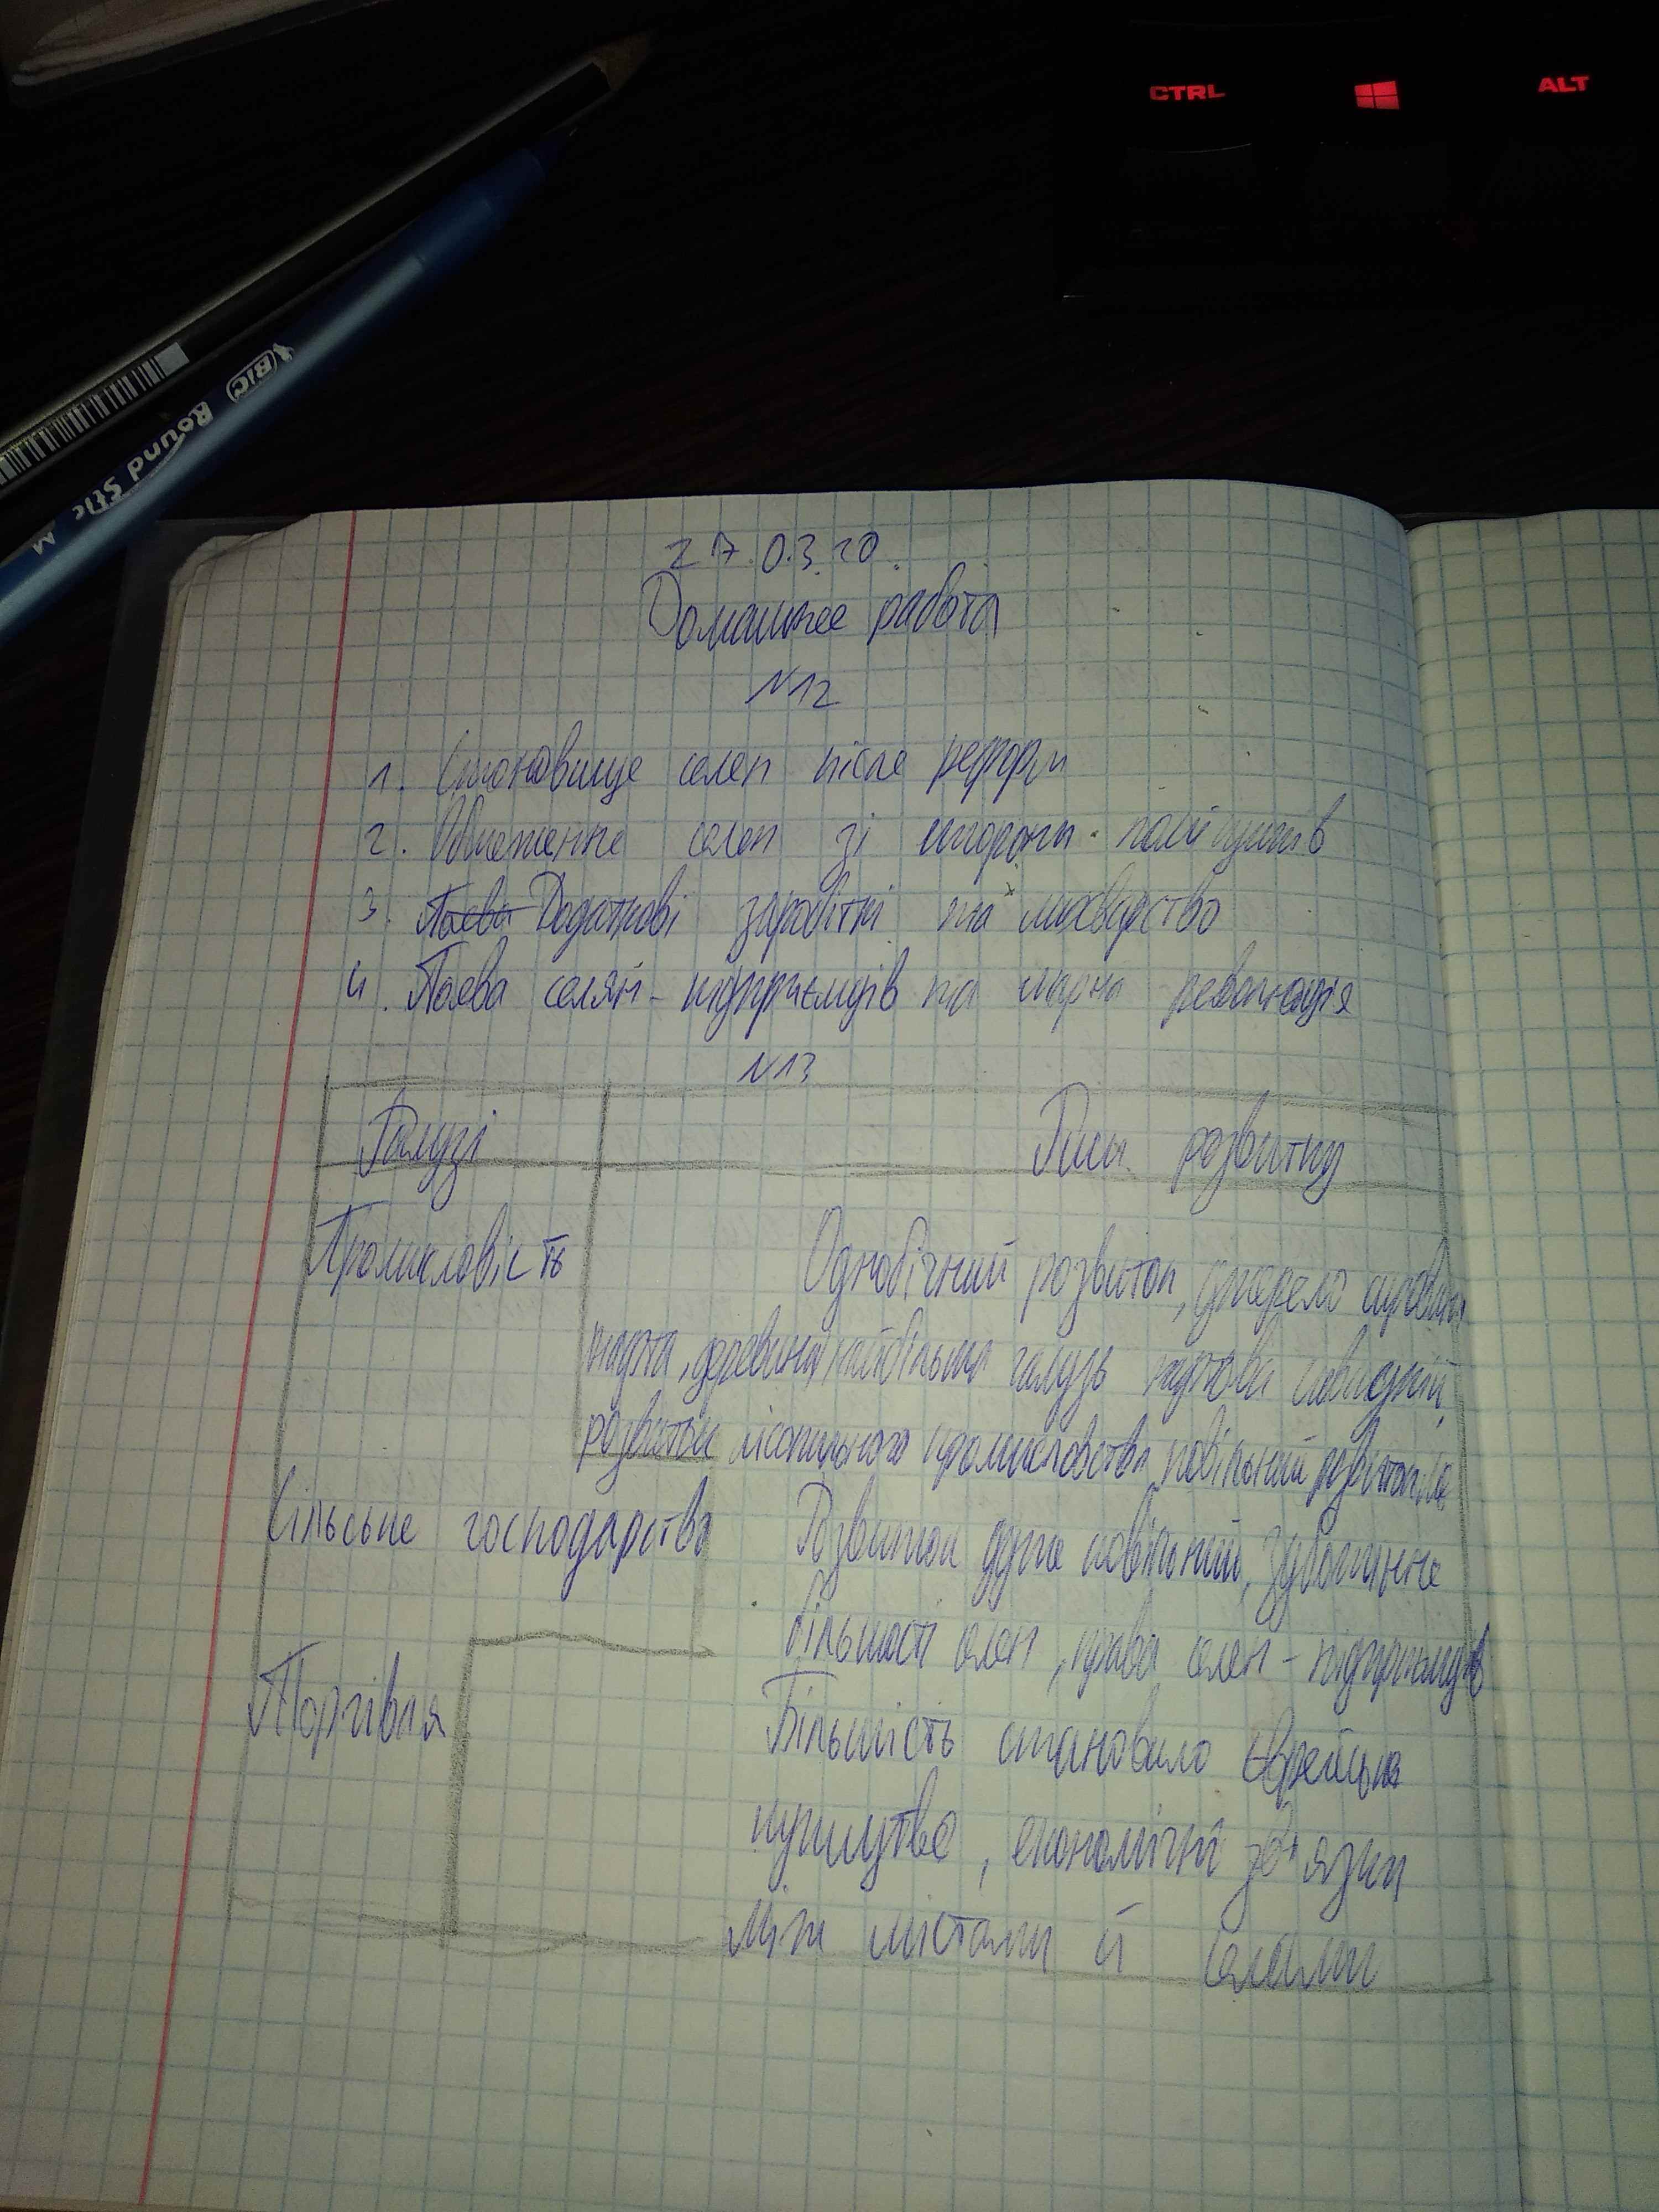 CTRL
ALT
BIC Round Stic M
27.03.20.
Домашнее работа
№12
1. Становище селян після реформ
2. Обмеження селян зі сторони поміщиків
3. Поява Додаткові заробітки та лихварство
4. Поява селян-підприємців та аграрна революція
№13
Галузі Риси розвитку
Промисловість Однобічний розвиток, джерело сировини
нафта, деревина, найбільша галузь нафтова і швидкий
розвиток лісопильного промисловства, повільний розвиток
Сільське господарство Розвиток дуже повільний, зубожіння
більшості селян, поява селян-підприємців
Торгівля Більшість становило єврейське
купецтво, економічні зв'язки
між містами й селами